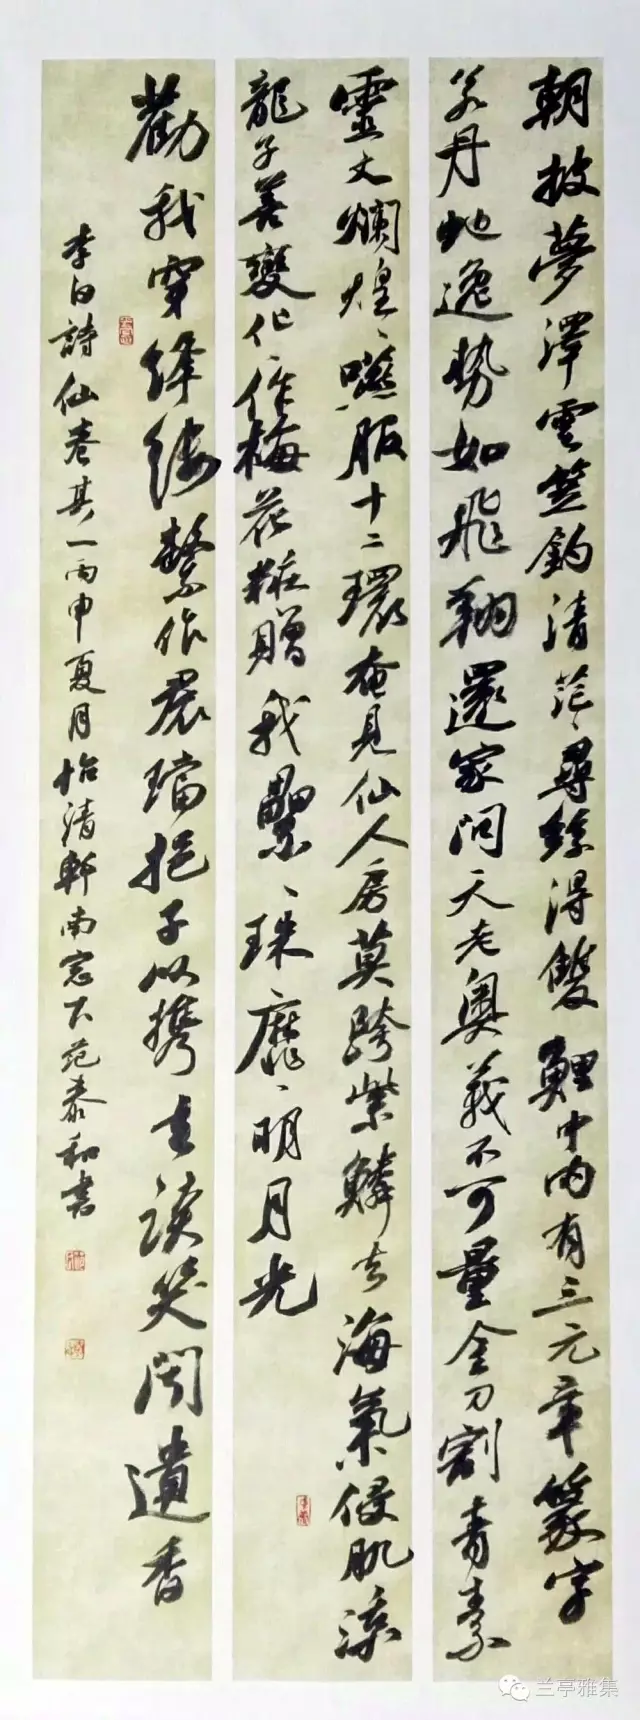 朝披夢澤雲笠釣清茫〻尋絲得雙鯉中內有三元章篆字
若丹虵逸势如飛翔還家問天老奧義不可量金刀割青素
靈文爛煌〻嚥服十二環奄見仙人房莫跨紫鱗去海氣侵肌涼
龍子善變化〻作梅花粧贈我纍〻珠靡〻明月光
勸我穿絳縷繫作裙間璫挹子以攜去談笑聞遺香
李白詩仙卷其一丙申夏月怡清軒南窓下范泰和書
兰亭雅集